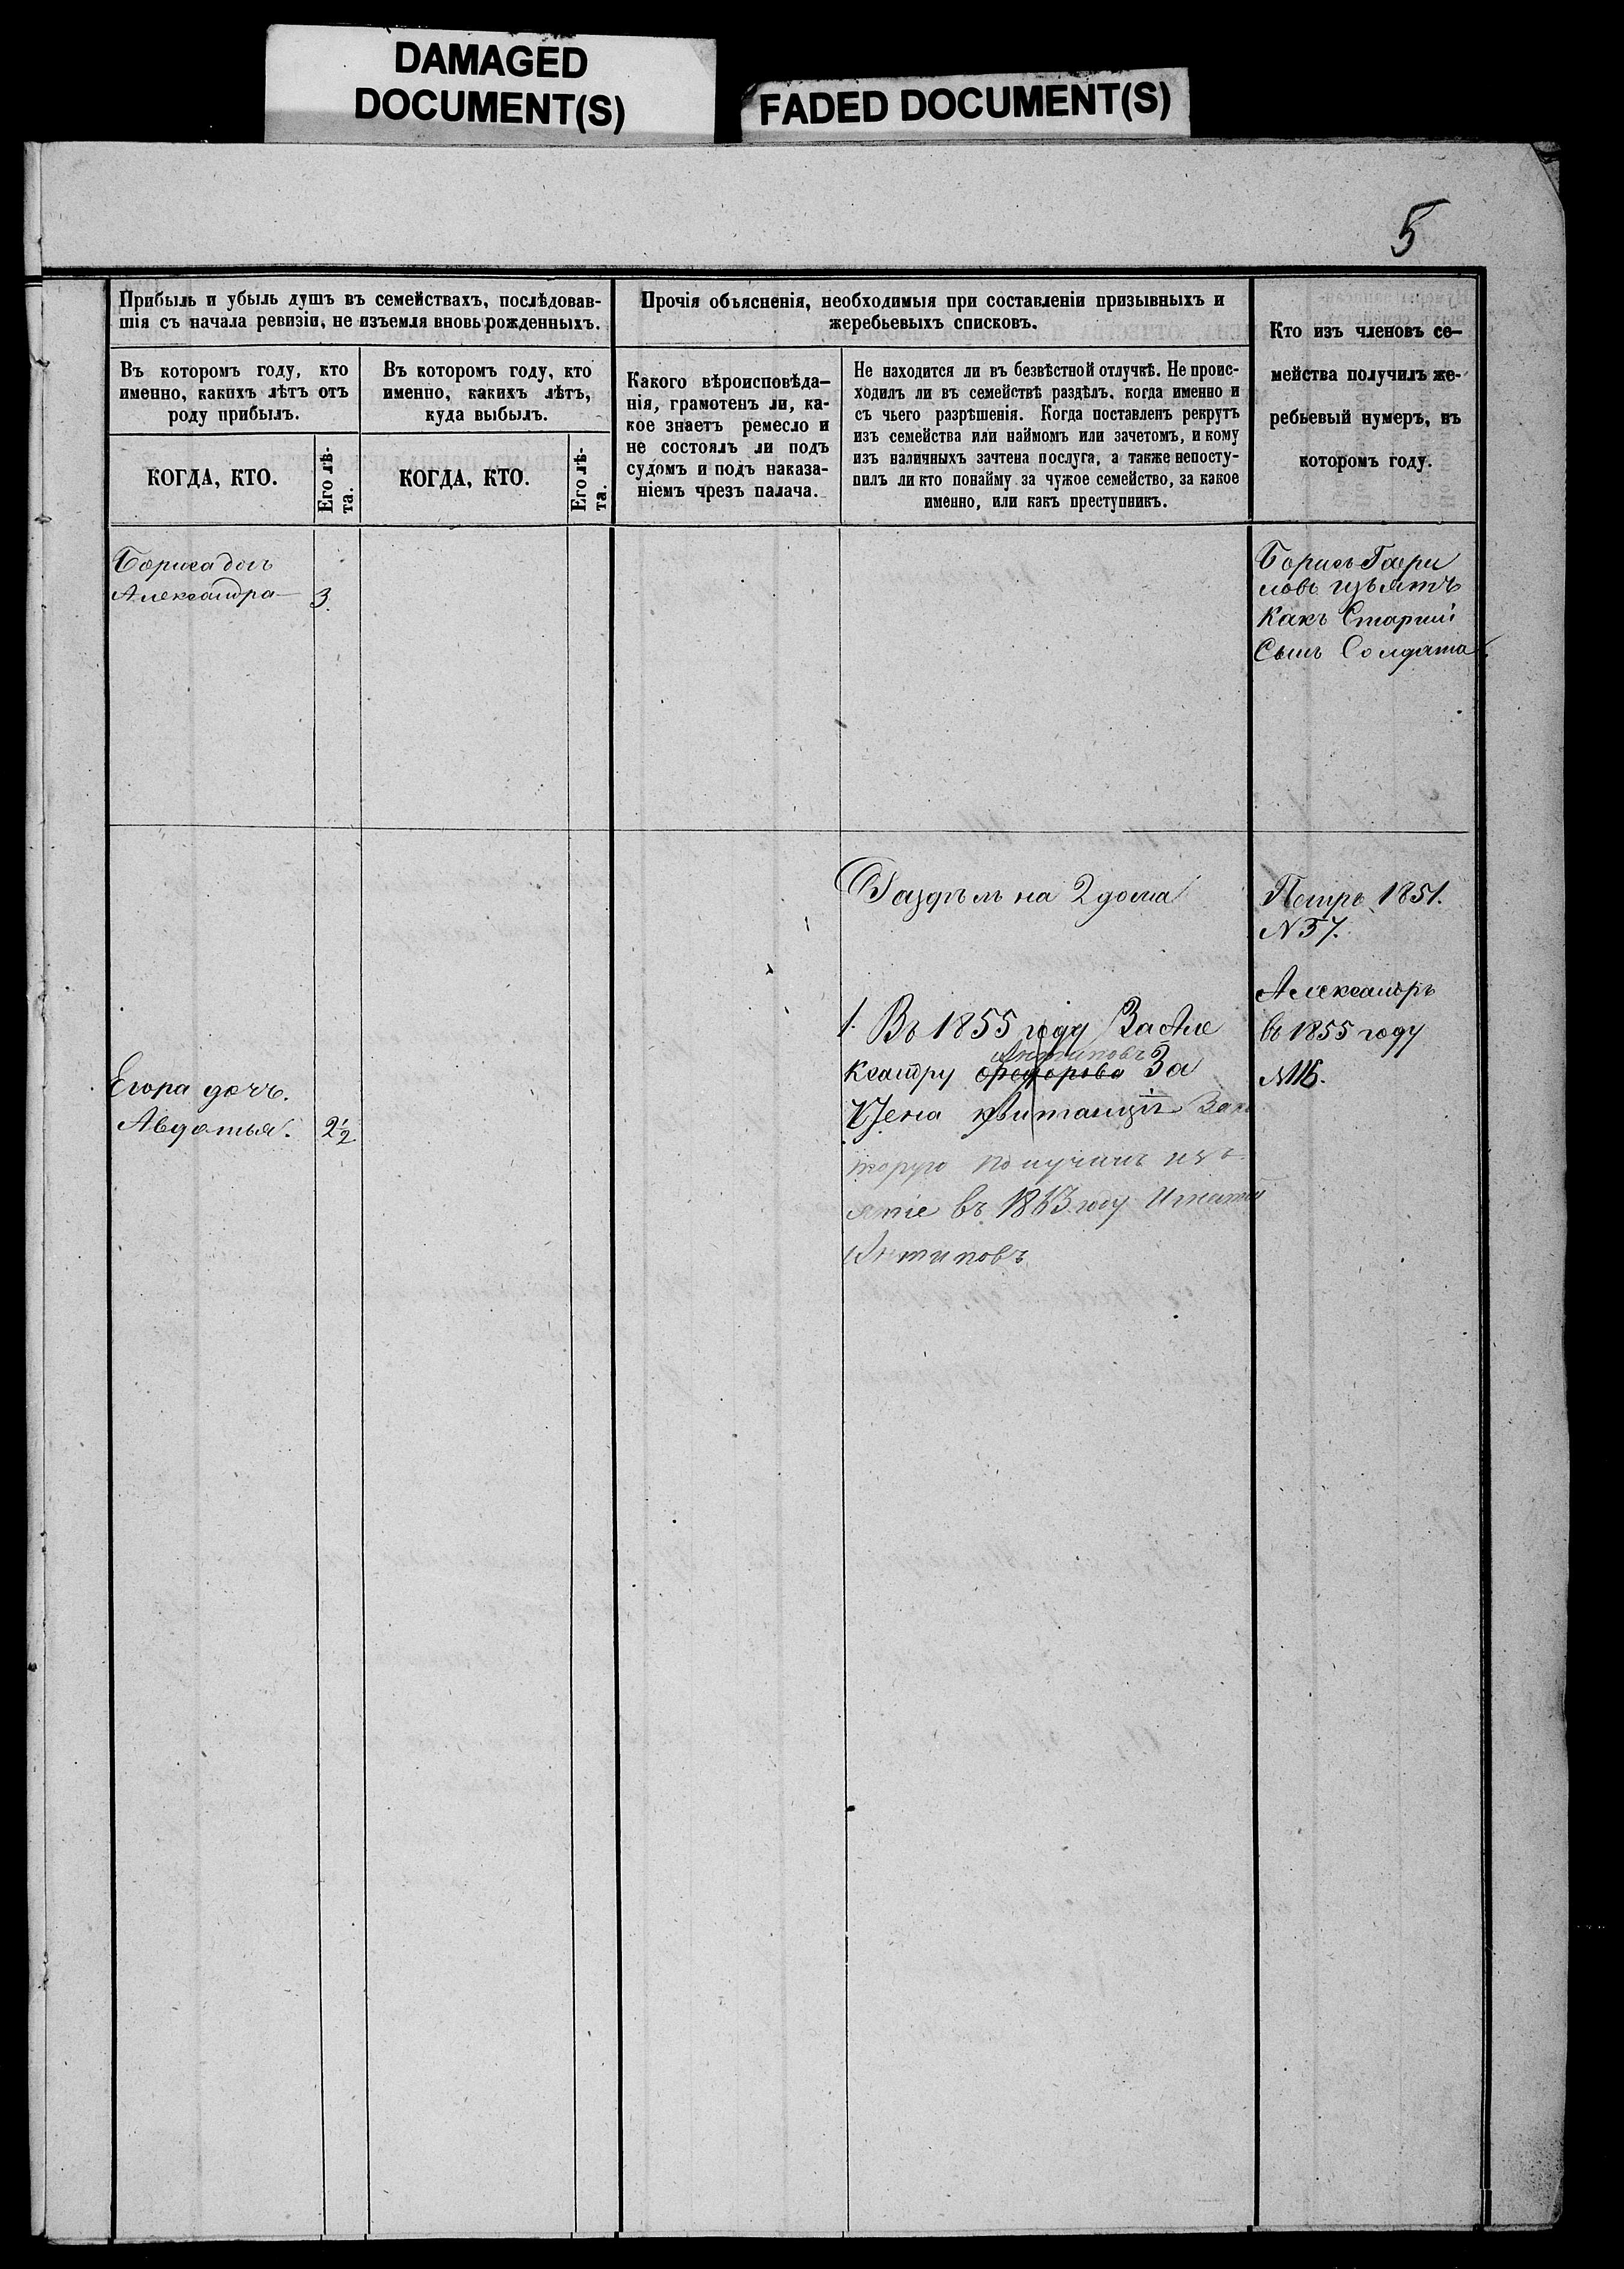 DAMAGED
DOCUMENT(S)
FADED DOCUMENT(S)
5
Прибыль и убыль душъ въ семействахъ, послѣдовав-
шія съ начала ревизіи, не изъемля вновь рожденныхъ.
Въ которомъ году, кто
именно, какихъ лѣтъ отъ
роду прибылъ.
КОГДА, КТО.
Его лѣ-
та.
Въ которомъ году, кто
именно, какихъ лѣтъ,
куда выбылъ.
КОГДА, КТО.
Его лѣ-
та.
Прочія объясненія, необходимыя при составленіи призывныхъ и
жеребьевыхъ списковъ.
Какого вѣроисповѣда-
нія, грамотенъ ли, ка-
кое знаетъ ремесло и
не состоялъ ли подъ
судомъ и подъ наказа-
ніемъ чрезъ палача.
Не находится ли въ безвѣстной отлучкѣ. Не проис-
ходилъ ли въ семействѣ раздѣлъ, когда именно и
съ чьего разрѣшенія. Когда поставленъ рекрутъ
изъ семейства или наймомъ или зачетомъ, и кому
изъ наличныхъ зачтена послуга, а также непосту-
пилъ ли кто понайму за чужое семейство, за какое
именно, или какъ преступникъ.
Кто изъ членовъ се-
мейства получилъ же-
ребьевый нумеръ, въ
которомъ году.
Бориса доч
Александра 3
Борисъ Гаври
ловъ изъятъ
Какъ Старшій
Сынъ Солдата
Раздѣлъ на 2 дома
Петръ 1851.
N 37.
1. Въ 1855 году За Але
Антиповъ
ксандру Федорова За
чтена квитанція За ко
торую получилъ изъ
ятіе въ 1863 году Игнатій
Антиповъ
Александръ
въ 1855 году
N 116.
Егора дочь.
Авдотья. 2 1/2